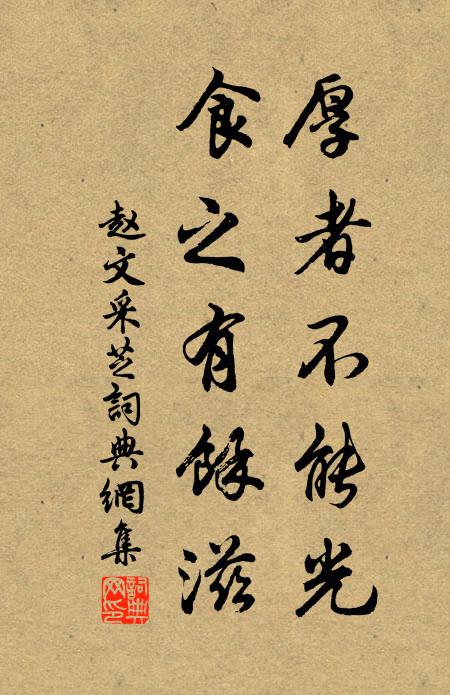 厚者不能光
食之有餘滋
赵文采芝詞典網集
詞典网印